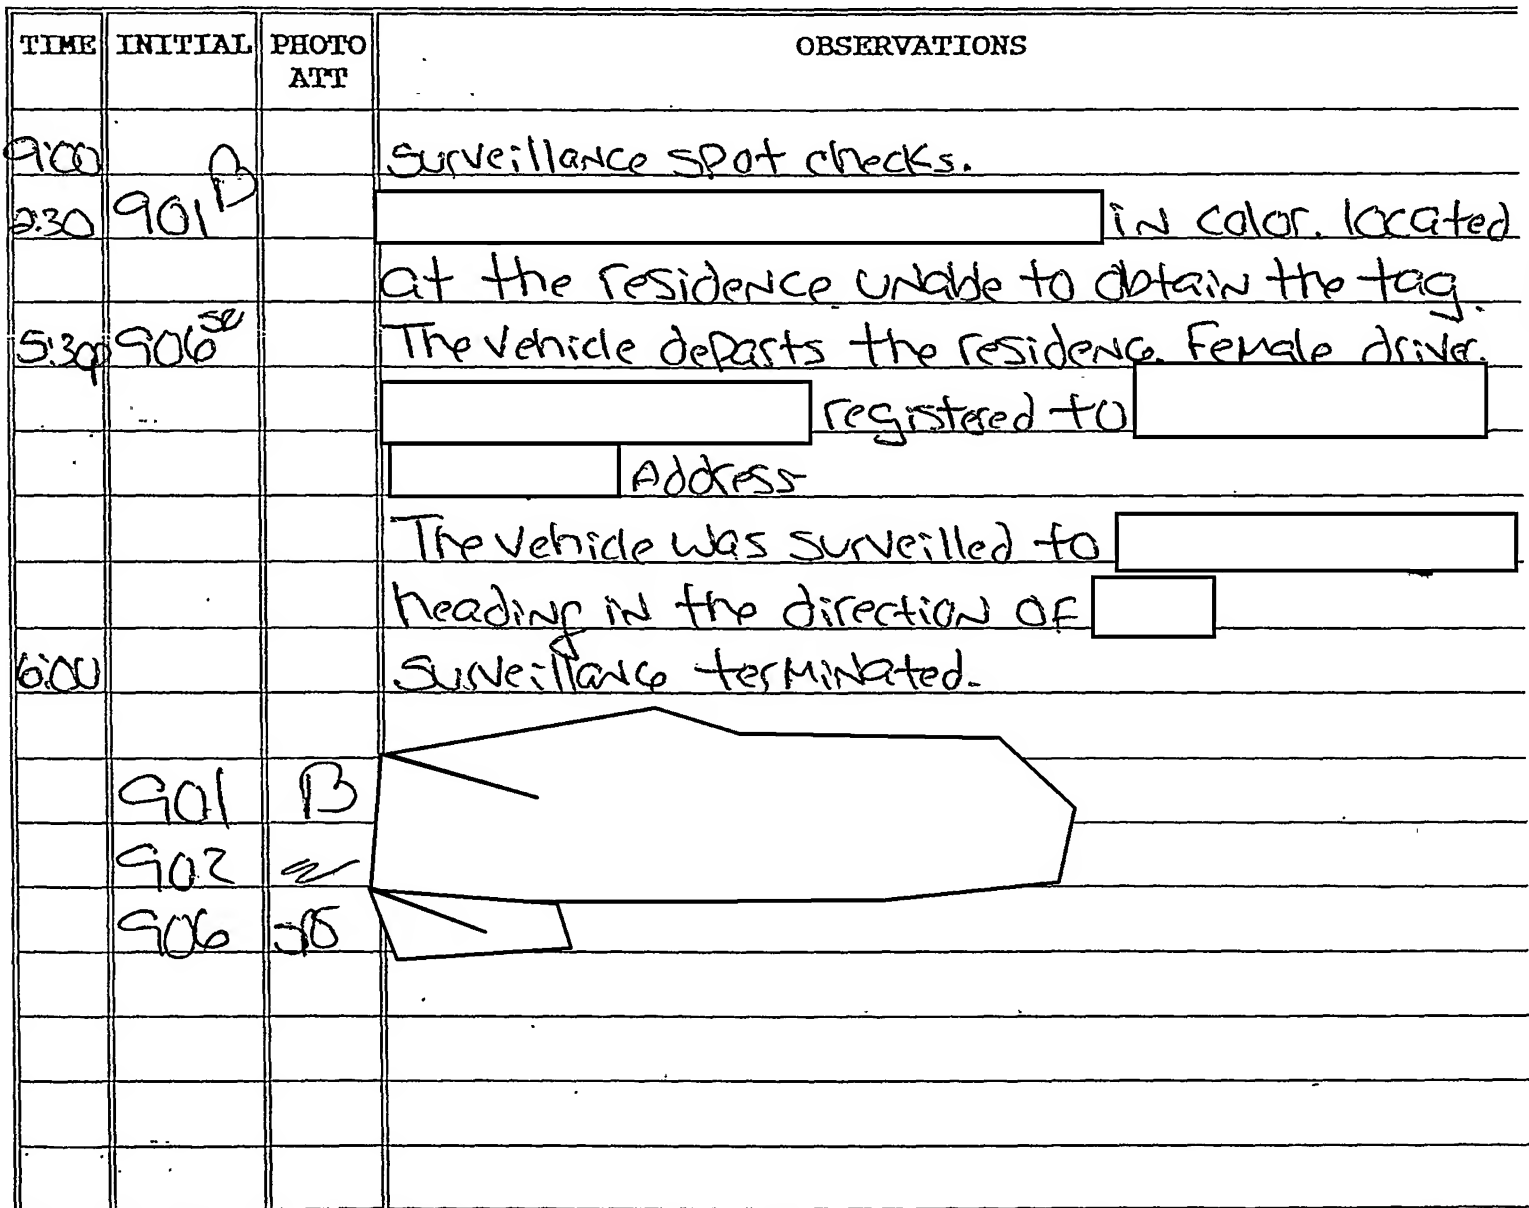 TIME INITIAL PHOTO ATT OBSERVATIONS
9:00 surveillance spot checks.
2:30 901 B in color. located
at the residence unable to obtain the tag.
5:30p 906 The vehicle departs the residence. Female driver.
registered to
Address
The vehicle was surveilled to
heading in the direction of
6:00 surveillance terminated.
901 B
902
906